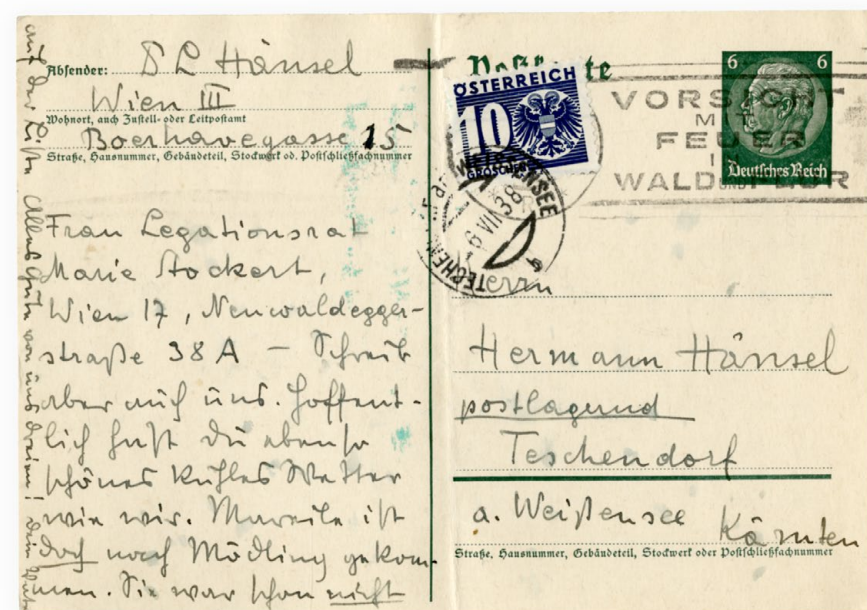 Absender: D L Hänsel
Wien III
Wohnort, auch Zustell- oder Leitpostamt
Boerhavegasse 15
Straße, Hausnummer, Gebäudeteil, Stockwerk od. Postschließfachnummer
Frau Legationsrat
Marie Stockert,
Wien 17, Neuwaldegger-
straße 38 A — Schreib
aber auch uns. Hoffent-
lich hast du ebenso
schönes kühles Wetter
wie wir. Mareile ist
doch nach Mödling gekom-
men. Sie war schon nicht
auf der Liste. Alles Gute von uns dreien! Dein
Postkarte
ÖSTERREICH
10
GROSCHEN
6 6
Deutsches Reich
VORSICHT
MIT
FEUER
IN
WALD UND FLUR
WEISSENSEE
6 VII 38
TECHEN
Herrn
Hermann Hänsel
postlagernd
Teschendorf
a. Weißensee Kärnten
Straße, Hausnummer, Gebäudeteil, Stockwerk oder Postschließfachnummer